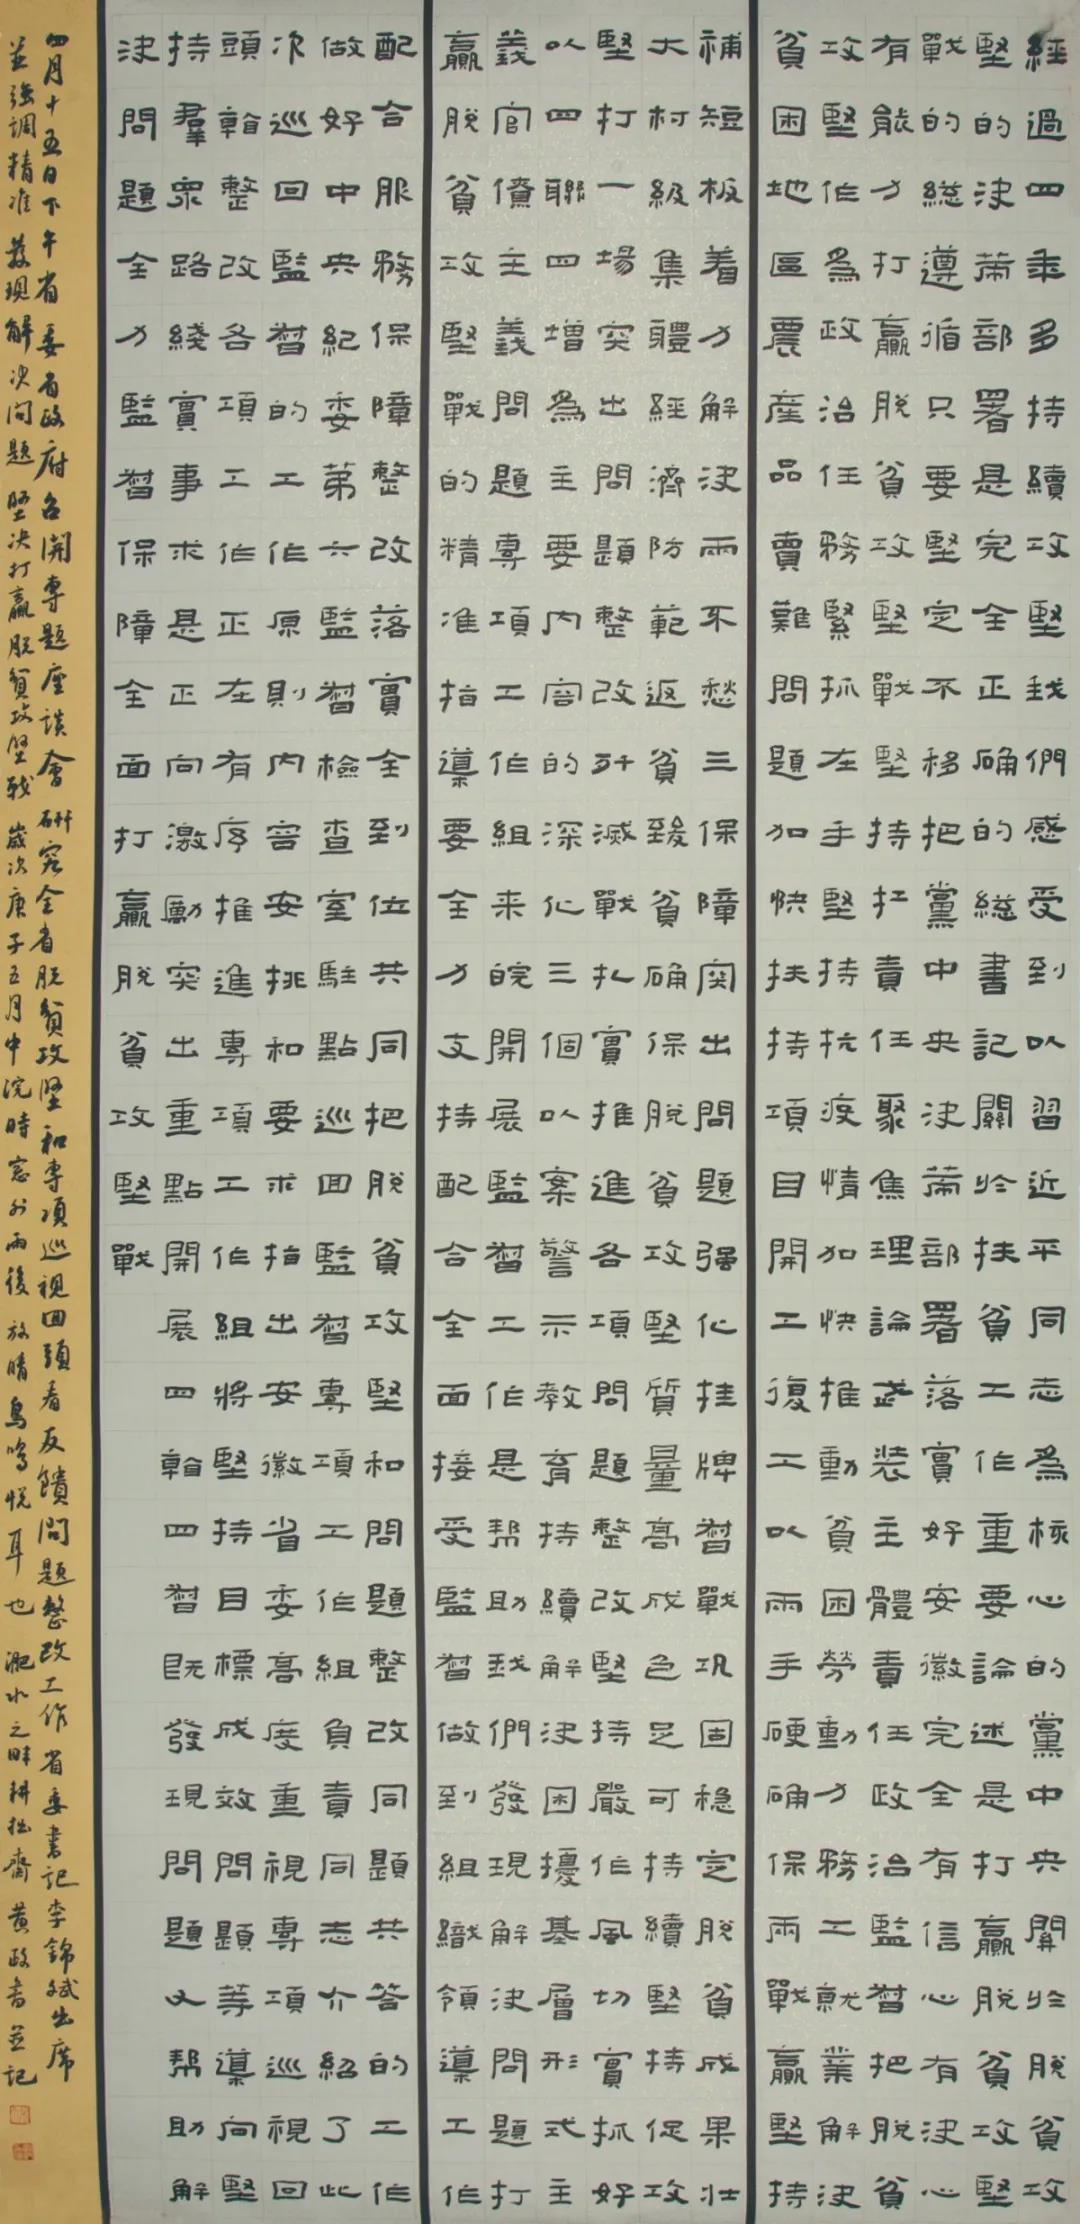 經過四年多持續攻堅我們感受到以習近平同志為核心的黨中央關於脫貧攻
堅的決策部署是完全正確的總書記關於扶貧工作重要論述是打贏脫貧攻堅
戰的總遵循只要堅定不移把黨中央決策部署落實好安徽完全有信心有決心
有能力打贏脫貧攻堅戰堅持扛責任聚焦理論武裝主體責任政治監督把脫貧
攻堅作為政治任務緊抓在手堅持抗疫情加快推動貧困勞動力務工就業解決
貧困地區農產品賣難問題加快扶持項目開工復工以兩手硬確保兩戰贏堅持
補短板着力解決兩不愁三保障突出問題强化挂牌督戰巩固稳定脫貧成果壯
大村級集體經濟防範返貧致貧確保脫貧攻堅質量高成色足可持續堅持促攻
堅打一場突出問題整改歼滅戰扎實推進各項問題整改堅持嚴作風切實抓好
以四聯四增為主要內容的深化三個以案警示教育持續解決困擾基層形式主
義官僚主義問題專項工作組來皖開展監督工作是帮助我們發現解決問題打
贏脫貧攻堅戰的精准指導要全力支持配合全面接受監督做到組織領導工作
配合服務保障整改落實全到位共同把脫貧攻堅和問題整改同題共答的工作
做好中央紀委第六監督檢查室駐點巡回監督專項工作組負責同志介紹了此
次巡回監督的工作原則內容安排和要求指出安徽省委高度重視專項巡視回
頭看整改各項工作正在有序推進專項工作組將堅持目標成效問題等導向堅
持羣衆路綫實事求是正向激勵突出重點開展四看四督既發現問題又帮助解
決問題全力監督保障全面打贏脫貧攻堅戰
四月十五日下午省委省政府召開專題座談會研究全省脫貧攻堅和專項巡視回頭看反饋問題整改工作省委書記李錦斌出席
並强調精准發現解決問題堅決打贏脫貧攻堅戰歲次庚子五月中浣時窓外雨後放晴鳥鳴悅耳也淝水之畔耕拙齋黄政書並記